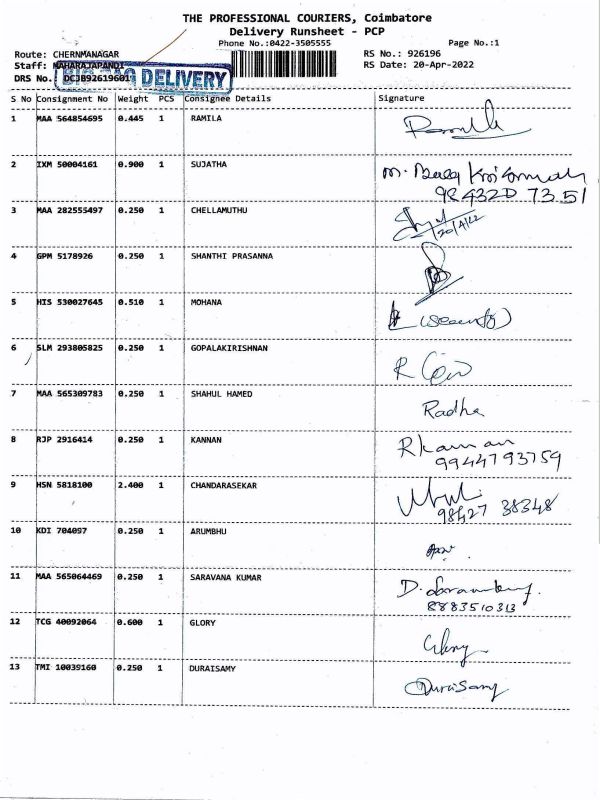 THE PROFESSIONAL COURIERS, Coimbatore
Delivery Runsheet - PCP
Phone No.:0422-3505555 Page No.:1
Route: CHERNMANAGAR RS No.: 926196
Staff: MAHARAJAPANDI RS Date: 20-Apr-2022
DRS No.: DCJB926196017
DELIVERY
S No Consignment No Weight PCS Consignee Details Signature
1 MAA 564854695 0.445 1 RAMILA
2 IXM 50004161 0.900 1 SUJATHA
98432D 7351
3 MAA 282555497 0.250 1 CHELLAMUTHU
20/4/22
4 GPM 5178926 0.250 1 SHANTHI PRASANNA
5 HIS 530027645 0.510 1 MOHANA
6 SLM 293805825 0.250 1 GOPALAKIRISHNAN R
7 MAA 565309783 0.250 1 SHAHUL HAMED Radha
8 RJP 2916414 0.250 1 KANNAN
9944793759
9 HSN 5818100 2.400 1 CHANDARASEKAR
98427 38348
10 KDI 704097 0.250 1 ARUMBHU
11 MAA 565064469 0.250 1 SARAVANA KUMAR
8883510313
12 TCG 40092064 0.600 1 GLORY Glory
13 TMI 10039160 0.250 1 DURAISAMY DuraiSamy